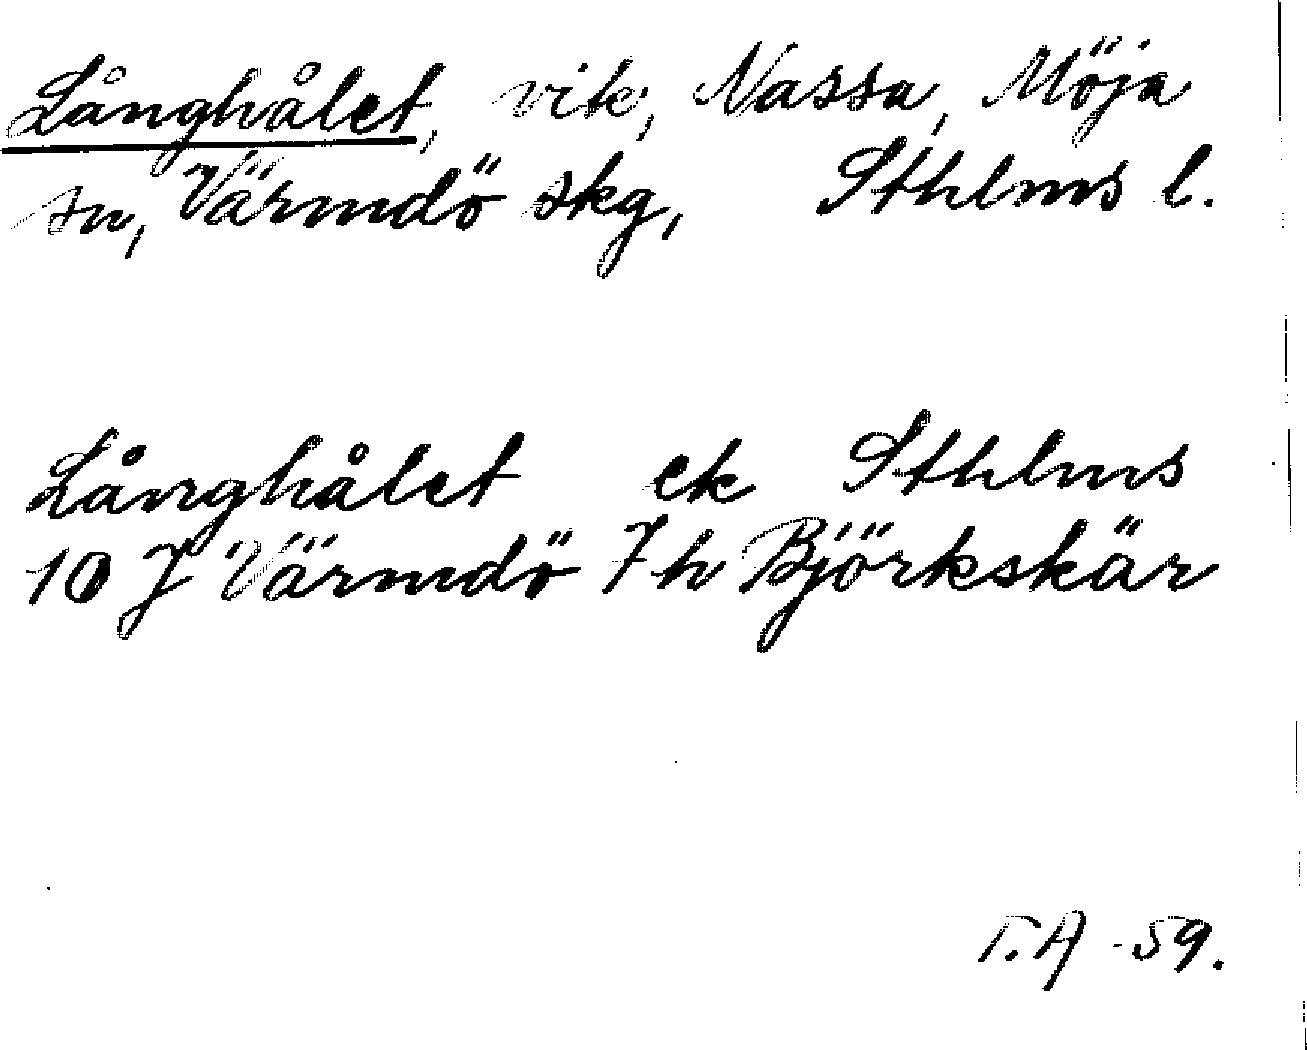 Långhålet, vik, Nassa, Möja
sn, Värmdö skg, Sthlms l.
Långhålet ek Sthlms
10 J Värmdö 7 h Björkskär
T.A -59.